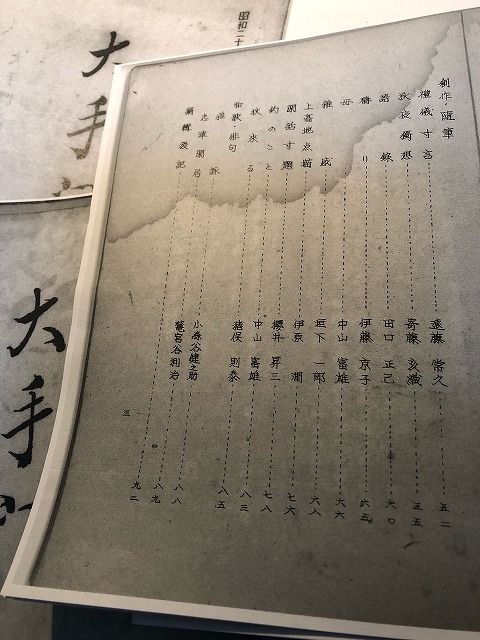 創作・随筆
礼儀寸言 遠藤常久 五二
秋夜独想 斎藤 五五
語録 田口正己 六〇
梅 伊藤京子 六五
中山富雄 六六
雑感 垣下一郎 六八
上高地点描 伊原潤 七六
閑話寸題 桜井昇三 七八
釣のこと 中山富雄 八三
秋来る 猪俣則泰 八五
和歌・俳句
雑詠 小森谷健之助 八八
志津閑居 鷲宮谷利治 八九
編輯後記 九二
三
大手
昭和二十
大手